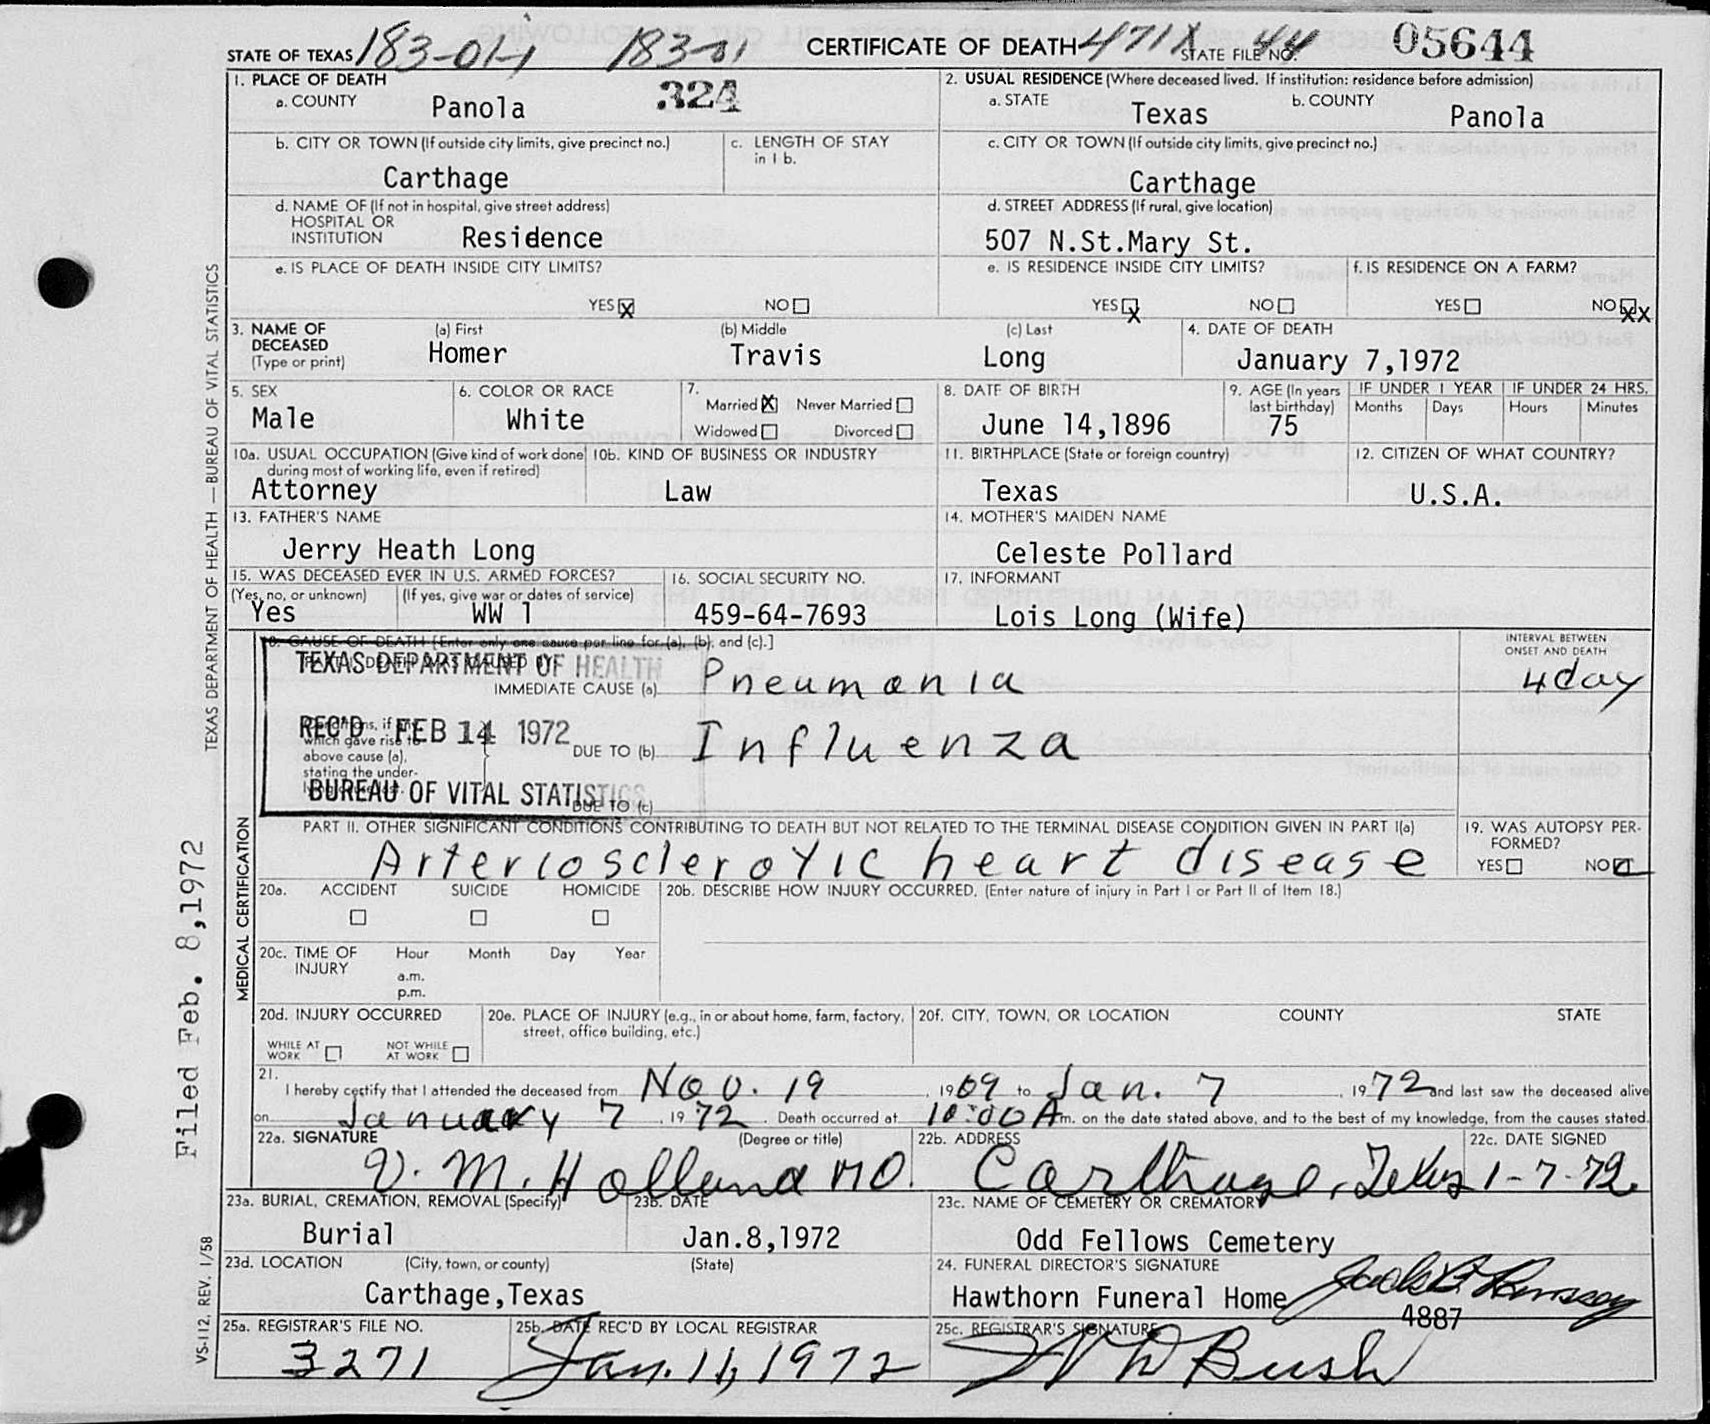 STATE OF TEXAS 183-01-1 183-01 CERTIFICATE OF DEATH 471X STATE FILE NO. 44 05644
1. PLACE OF DEATH
a. COUNTY Panola 324
2. USUAL RESIDENCE (Where deceased lived. If institution: residence before admission)
a. STATE Texas b. COUNTY Panola
b. CITY OR TOWN (If outside city limits, give precinct no.) Carthage
c. LENGTH OF STAY in 1 b.
c. CITY OR TOWN (If outside city limits, give precinct no.) Carthage
d. NAME OF (If not in hospital, give street address) HOSPITAL OR INSTITUTION Residence
d. STREET ADDRESS (If rural, give location) 507 N.St.Mary St.
e. IS PLACE OF DEATH INSIDE CITY LIMITS?
YES X NO
e. IS RESIDENCE INSIDE CITY LIMITS?
YES X NO
f. IS RESIDENCE ON A FARM?
YES NO XX
3. NAME OF DECEASED (Type or print)
(a) First Homer
(b) Middle Travis
(c) Last Long
4. DATE OF DEATH January 7,1972
5. SEX Male
6. COLOR OR RACE White
7. Married X Never Married
Widowed Divorced
8. DATE OF BIRTH June 14,1896
9. AGE (In years last birthday) 75
IF UNDER 1 YEAR Months Days
IF UNDER 24 HRS. Hours Minutes
10a. USUAL OCCUPATION (Give kind of work done during most of working life, even if retired) Attorney
10b. KIND OF BUSINESS OR INDUSTRY Law
11. BIRTHPLACE (State or foreign country) Texas
12. CITIZEN OF WHAT COUNTRY? U.S.A.
13. FATHER'S NAME Jerry Heath Long
14. MOTHER'S MAIDEN NAME Celeste Pollard
15. WAS DECEASED EVER IN U.S. ARMED FORCES?
(Yes, no, or unknown) Yes (If yes, give war or dates of service) WW 1
16. SOCIAL SECURITY NO. 459-64-7693
17. INFORMANT Lois Long (Wife)
18. CAUSE OF DEATH [Enter only one cause per line for (a), (b), and (c).]
INTERVAL BETWEEN ONSET AND DEATH
TEXAS DEPARTMENT OF HEALTH
IMMEDIATE CAUSE (a) Pneumonia 4 day
REC'D FEB 14 1972
Conditions, if any which gave rise to above cause (a), stating the under-
DUE TO (b) Influenza
BUREAU OF VITAL STATISTICS
DUE TO (c)
PART II. OTHER SIGNIFICANT CONDITIONS CONTRIBUTING TO DEATH BUT NOT RELATED TO THE TERMINAL DISEASE CONDITION GIVEN IN PART I(a)
Arteriosclerotic heart disease
19. WAS AUTOPSY PERFORMED?
YES NO
20a. ACCIDENT SUICIDE HOMICIDE
20b. DESCRIBE HOW INJURY OCCURRED. (Enter nature of injury in Part I or Part II of Item 18.)
20c. TIME OF INJURY Hour Month Day Year
a.m.
p.m.
20d. INJURY OCCURRED
WHILE AT WORK NOT WHILE AT WORK
20e. PLACE OF INJURY (e.g., in or about home, farm, factory, street, office building, etc.)
20f. CITY, TOWN, OR LOCATION COUNTY STATE
21.
I hereby certify that I attended the deceased from Nov. 19, 1969 to Jan. 7, 1972 and last saw the deceased alive
on January 7, 1972. Death occurred at 10:00 A m. on the date stated above, and to the best of my knowledge, from the causes stated.
22a. SIGNATURE (Degree or title) V. M. Holland MD.
22b. ADDRESS Carthage, Texas
22c. DATE SIGNED 1-7-72
23a. BURIAL, CREMATION, REMOVAL (Specify) Burial
23b. DATE Jan.8,1972
23c. NAME OF CEMETERY OR CREMATORY Odd Fellows Cemetery
23d. LOCATION (City, town, or county) (State) Carthage,Texas
24. FUNERAL DIRECTOR'S SIGNATURE Hawthorn Funeral Home
4887
25a. REGISTRAR'S FILE NO. 3271
25b. DATE REC'D BY LOCAL REGISTRAR Jan. 11, 1972
25c. REGISTRAR'S SIGNATURE Bush
TEXAS DEPARTMENT OF HEALTH — BUREAU OF VITAL STATISTICS
MEDICAL CERTIFICATION
Filed Feb. 8,1972
VS-112, REV. 1/58